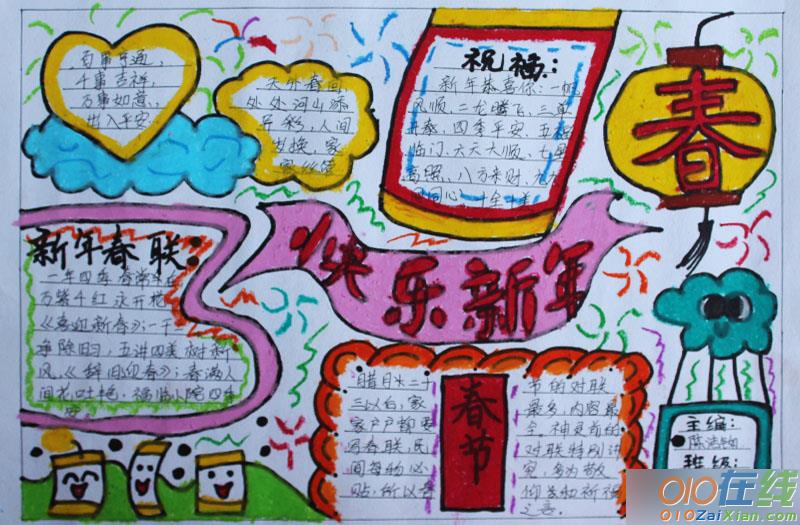 百事亨通,
千事吉祥,
万事如意,
出入平安
天外春回
处处河山添
异彩,人间
祝福:
新年恭喜你:一帆
风顺,二龙腾飞,三羊
开泰,四季平安,五福
临门,六六大顺,七星
高照,八方来财,九九
同心,十全十美
春
新年春联:
一年四季春常在
万紫千红永开花
《喜迎新春》:一干二
净除旧习,五讲四美树新
风,《辞旧迎春》:春满人
间花吐艳,福临小院四季
安
快乐新年
腊月二十
三以后,家
家户户都要
写春联,民
间每物必
贴,所以春
春节
节的对联
最多,内容最
全。神灵前的
对联特别讲
究,多为敬
仰和祈福
之言。
主编:
班级:
010在线
010ZaiXian.com